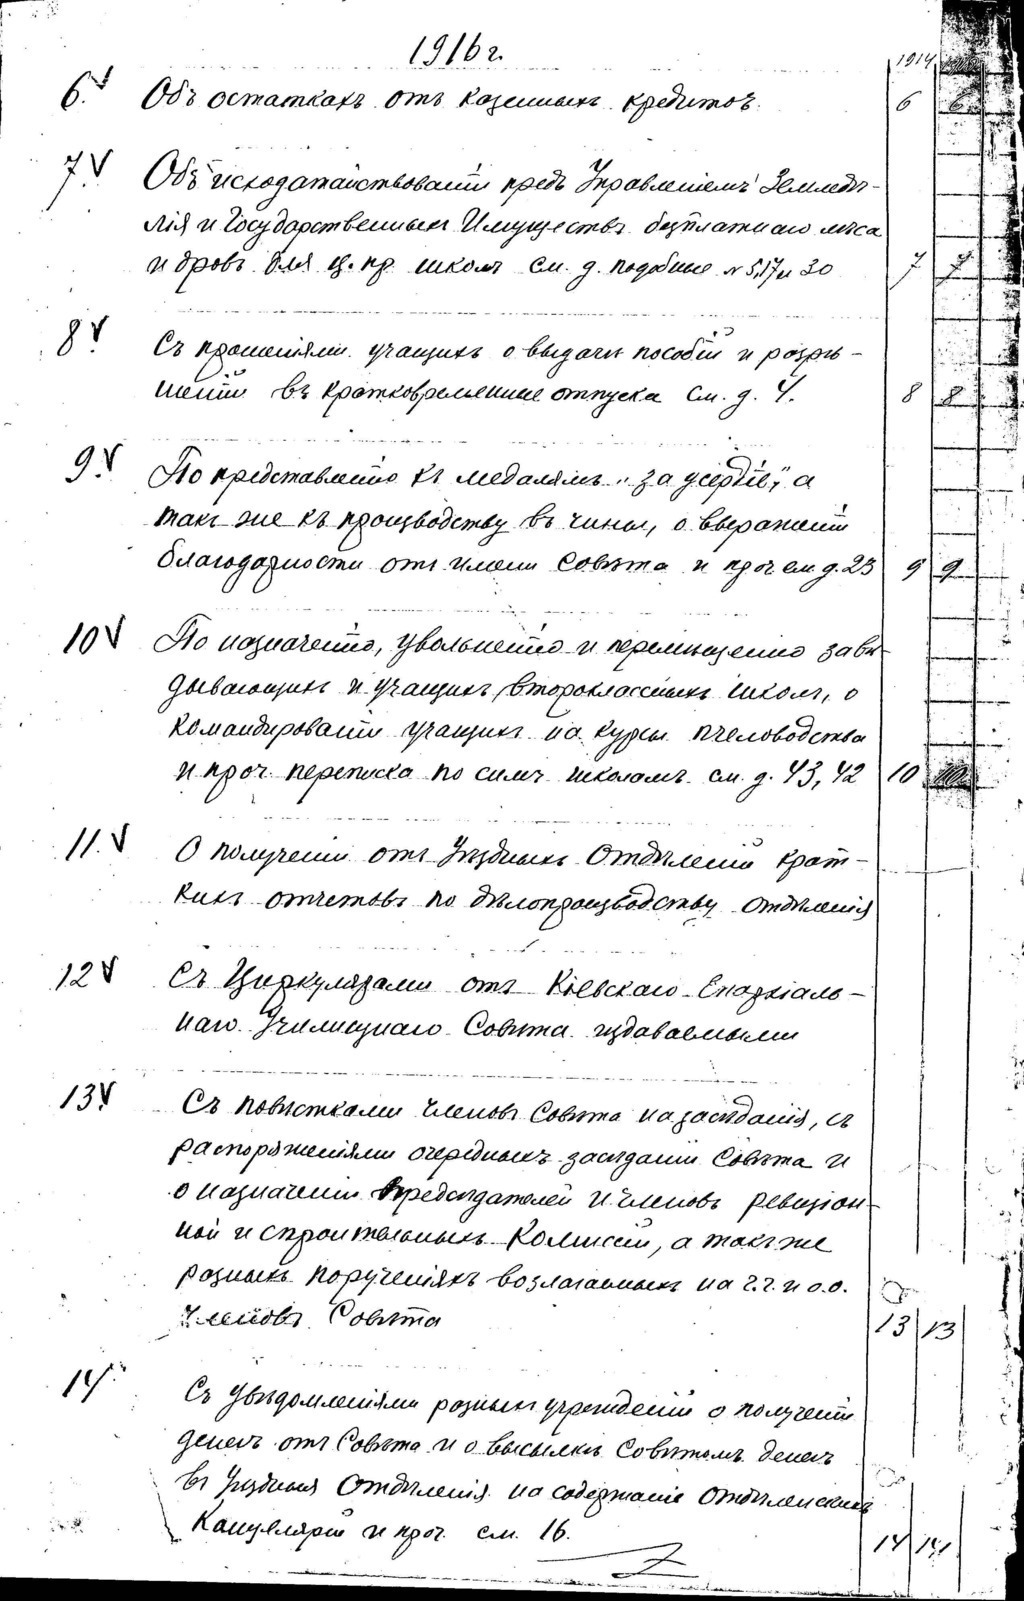 1916 г.
1914
6. Объ остаткахъ отъ казенныхъ кредитовъ. 6 6
7. Объ исходатайствованіи предъ Управленіемъ Земледѣ-
лія и Государственныхъ Имуществъ безплатнаго лѣса
и дровъ для ц. пр. школъ см. д. подобные № 5, 17 и 30 7 7
8. Съ прошеніями учащихъ о выдачи пособій и разрѣ-
шеніи въ кратковременные отпуска см. д. 4. 8 8
9. По представленію къ медалямъ "за усердіе", а
такъ же къ производству въ чины, о выраженіи
благодарности отъ имени Совѣта и проч см. д. 23 9 9
10 По назначенію, увольненію и перемѣщенію завѣ-
дывающихъ и учащихъ второклассныхъ школъ, о
командированіи учащихъ на курсы пчеловодства
и проч. переписка по симъ школамъ см. д. 43, 42 10 10
11. О полученіи отъ Уѣздныхъ Отдѣленій крат-
кихъ отчетовъ по дѣлопроизводству Отдѣленія
12 Съ Циркулярами отъ Кіевскаго Епархіаль-
наго Училищнаго Совѣта издаваемыми
13. Съ повѣстками членовъ Совѣта на засѣданія, съ
распоряженіями очередныхъ засѣданій Совѣта и
о назначеніи предсѣдателей и членовъ ревизіон-
ной и строительныхъ Комиссій, а такъ же
разныхъ порученіяхъ возлагаемыхъ на г.г. и о.о.
членовъ Совѣта 13 13
14. Съ увѣдомленіями разныхъ учрежденій о полученіи
денегъ отъ Совѣта и о высылкѣ Совѣтомъ денегъ
въ Уѣздныя Отдѣленія на содержаніе Отдѣленскихъ
Канцелярій и проч. см. 16. 14 14